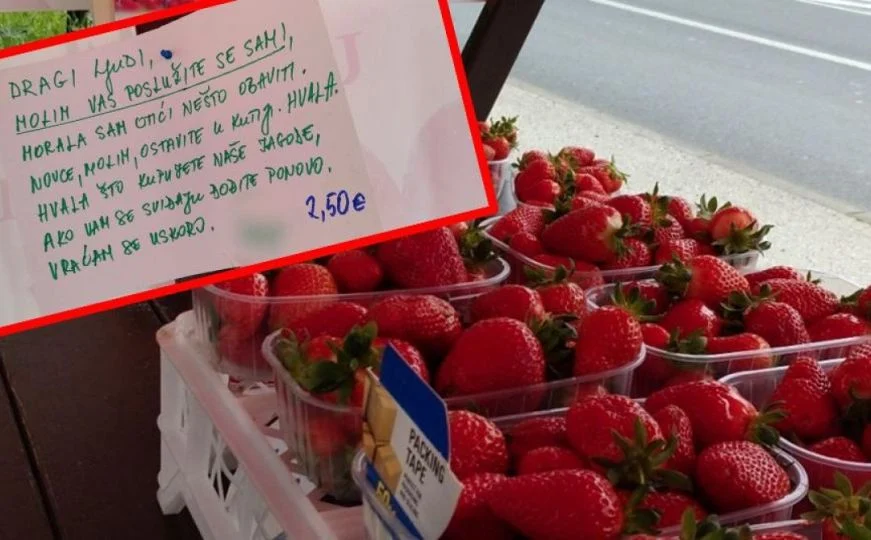 DRAGI LJUDI,
MOLIM VAS POSLUŽITE SE SAMI,
MORALA SAM OTIĆI NEŠTO OBAVITI.
NOVCE, MOLIM, OSTAVITE U KUTIJI. HVALA.
HVALA ŠTO KUPUJETE NAŠE JAGODE,
AKO VAM SE SVIĐAJU DOĐITE PONOVO.
VRAĆAM SE USKORO.
2,50€
PACKING
TAPE